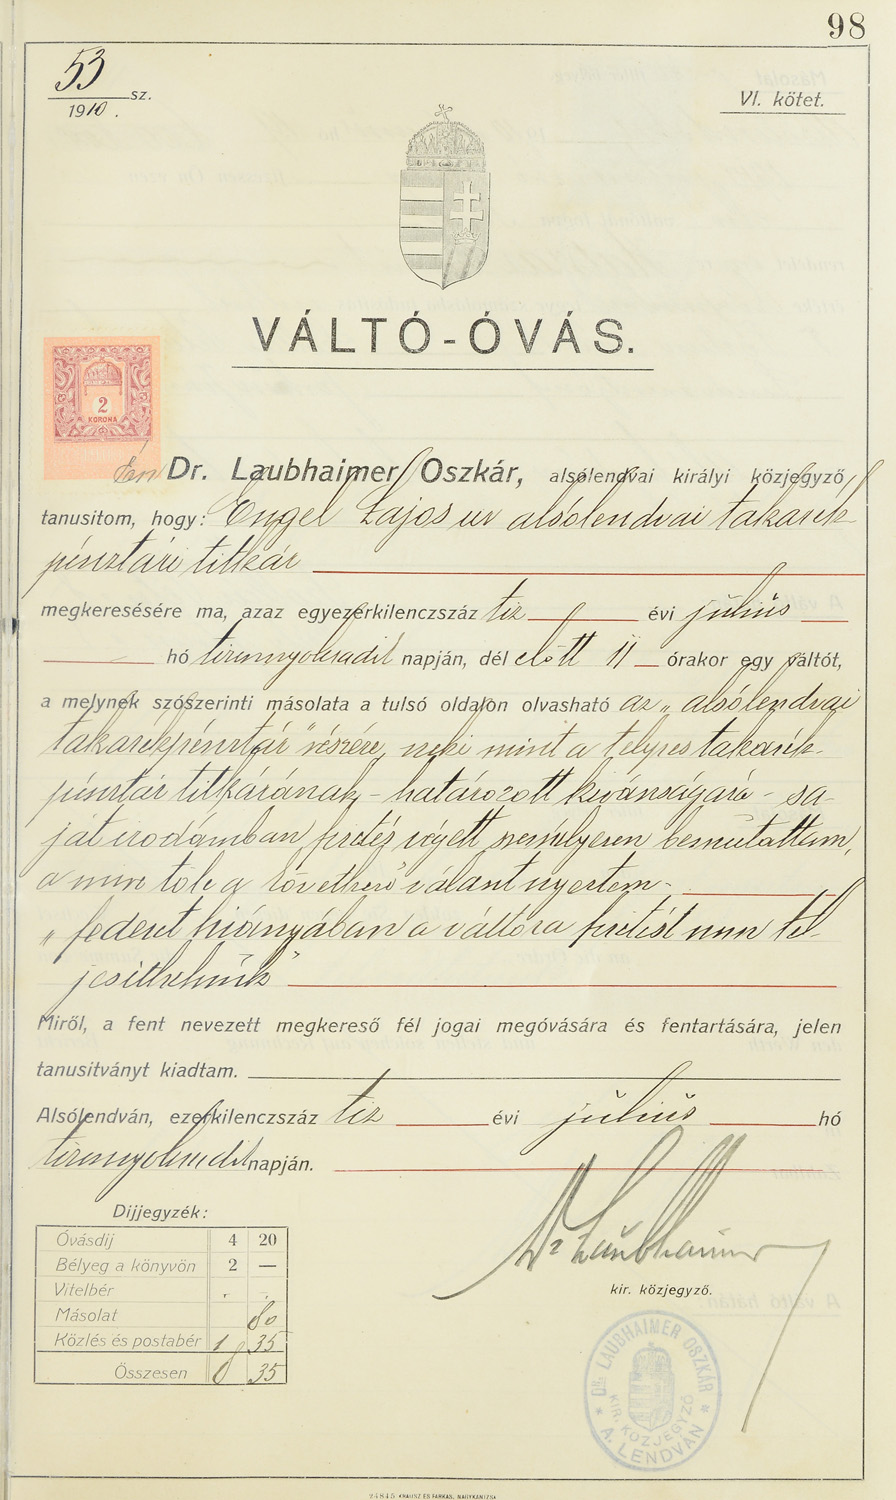 98
53 sz.
1910.
VI. kötet.
VÁLTÓ-ÓVÁS.
2
KORONA
Én Dr. Laubhaimer Oszkár, alsólendvai királyi közjegyző
tanusitom, hogy: Engel Lajos ur alsólendvai takarék-
pénztári titkár
megkeresésére ma, azaz egyezerkilenczszáz tiz évi július
hó tizennyolcadik napján, dél előtt 11 órakor egy váltót,
a melynek szószerinti másolata a tulsó oldalon olvasható az „alsólendvai
takarékpénztár" részére, neki mint a telpes takarék-
pénztár titkárának – határozott kivánságára – sa-
ját irodámban fizetés végett személyesen bemutattam,
a mire tőle a következő választ nyertem –
„fedezet hiányában a váltóra fizetést nem tel-
jesíthetünk"
Miről, a fent nevezett megkereső fél jogai megóvására és fentartására, jelen
tanusitványt kiadtam.
Alsólendván, ezerkilenczszáz tiz évi július hó
tizennyolcadik napján.
Dijjegyzék:
Óvásdij 4 20
Bélyeg a könyvön 2 —
Vitelbér
Másolat 80
Közlés és postabér 1 35
Összesen 35
Dr Laubhaimer
kir. közjegyző.
DR. LAUBHAIMER OSZKÁR
KIR. KÖZJEGYZŐ
A. LENDVÁN
24845 KRAUSZ ÉS FARKAS, NAGYKANIZSA